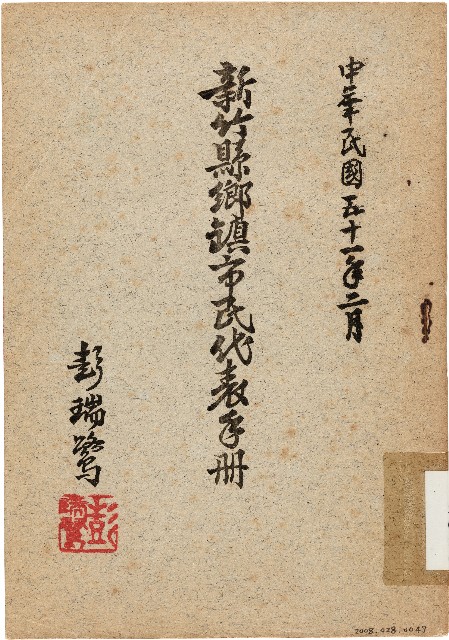 中華民國五十一年二月
新竹縣鄉鎮市民代表手册
彭瑞鷺
彭瑞鷺
2008.028.0047